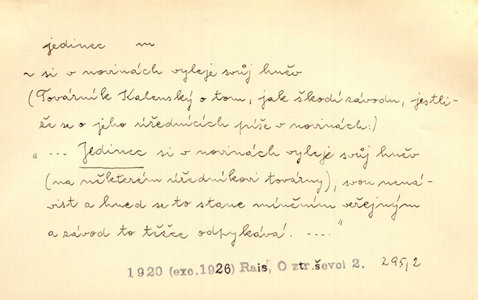 jedinec m
~ si v novinách vyleje svůj hněv
(Továrník Kalenský o tom, jak škodí závodu, jestli-
že se o jeho úřednících píše v novinách:)
„ ... Jedinec si v novinách vyleje svůj hněv
(na některém úředníkovi továrny), svou nená-
vist a hned se to stane míněním veřejným
a závod to těžce odpykává. ...."
1920 (exc. 1926) Rais, O ztr. ševci 2. 295,2